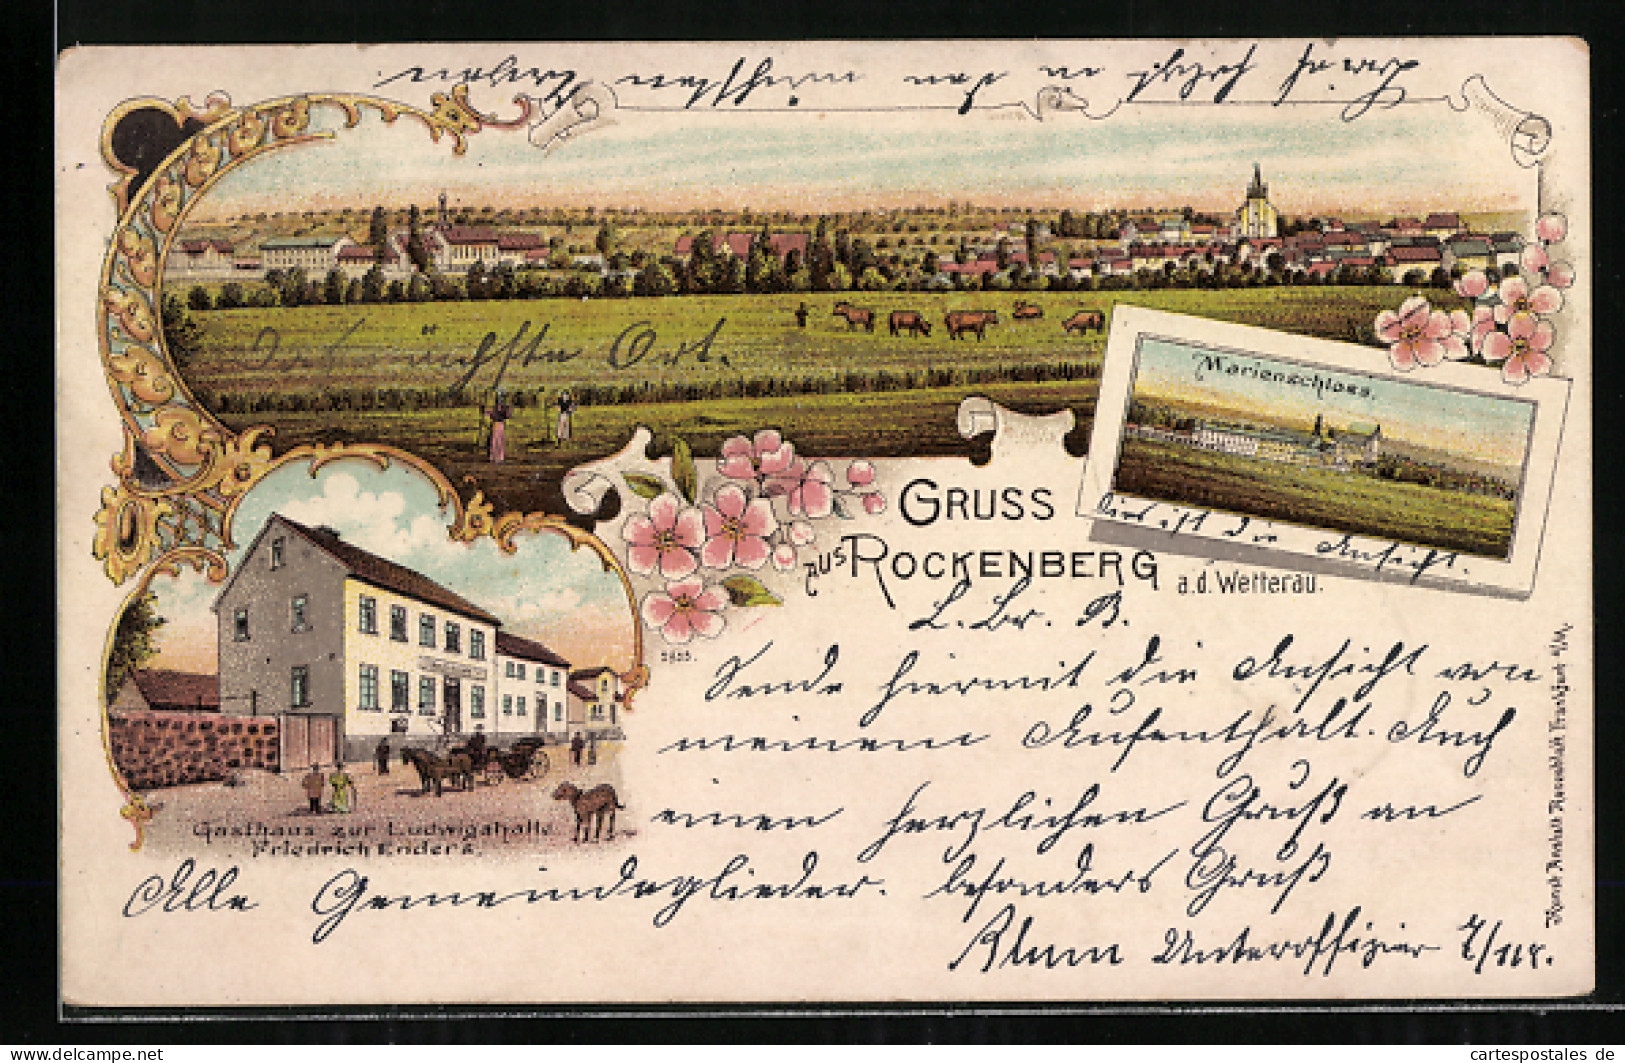 Das nächste Ort.
Marienschloss.
Dies ist die Ansicht.
GRUSS
AUS ROCKENBERG
a.d. Wetterau.
L. Br. B.
Sende hiermit die Ansicht von
meinem Aufenthalt. Auch
einen herzlichen Gruß an
Alle Gemeindeglieder. besonders Gruß
Unteroffizier
Gasthaus zur Ludwigshalle
Friedrich Enders.
Kunst Anstalt Rosenblatt Frankfurt a/M.
cartespostales de
https://www.cartespostales.de